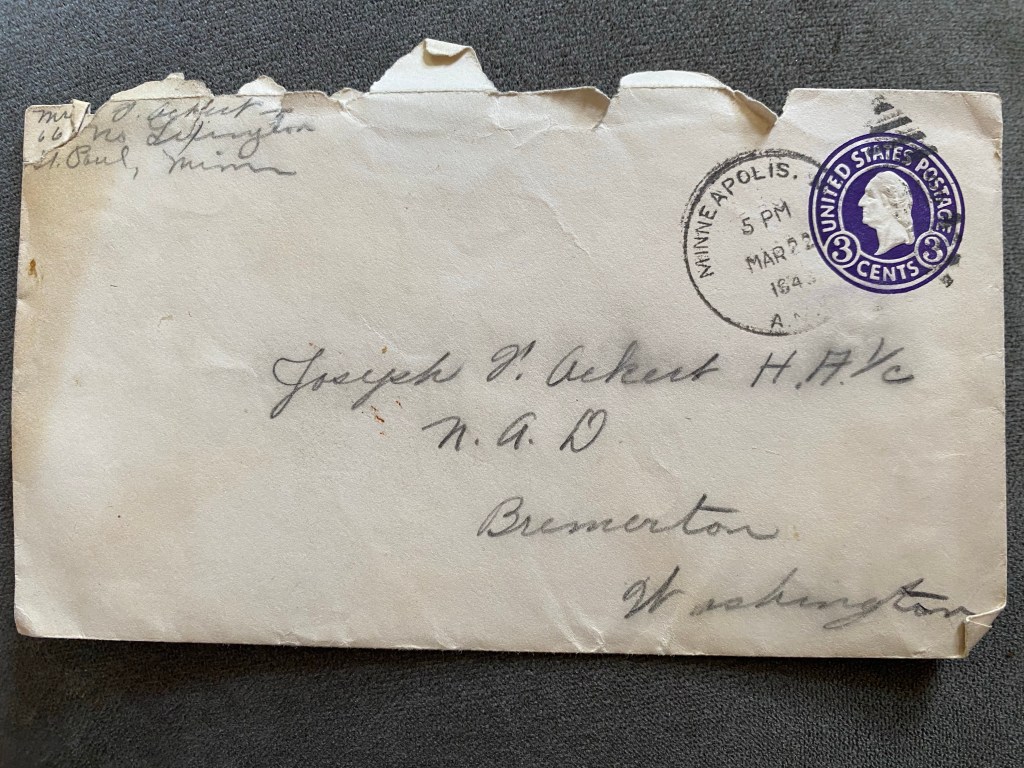 J. Ackert
No. Lexington
St. Paul, Minn
MINNEAPOLIS.
5 PM
MAR 22
UNITED STATES POSTAGE
3 CENTS 3
Joseph V. Ackert H.A. 1/c
N. A. D.
Bremerton
Washington